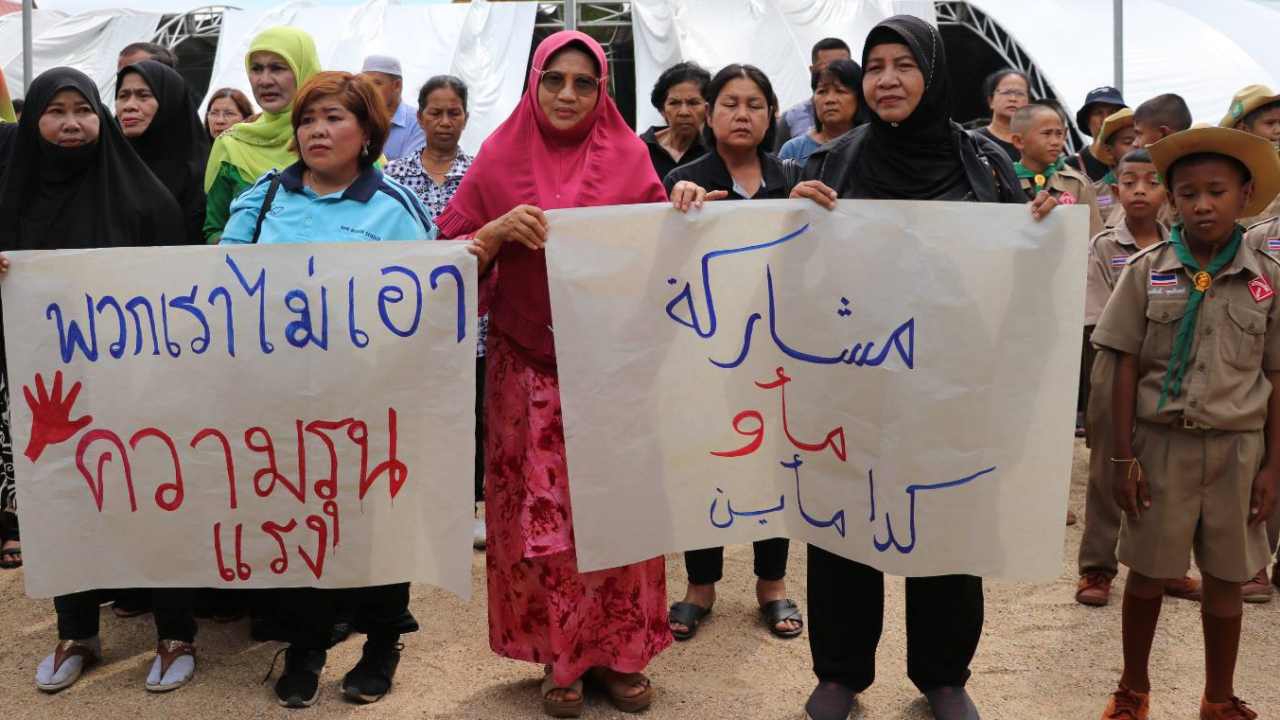 พวกเราไม่เอา
ความรุน
แรง
مشاركة
مأو
كدامأين